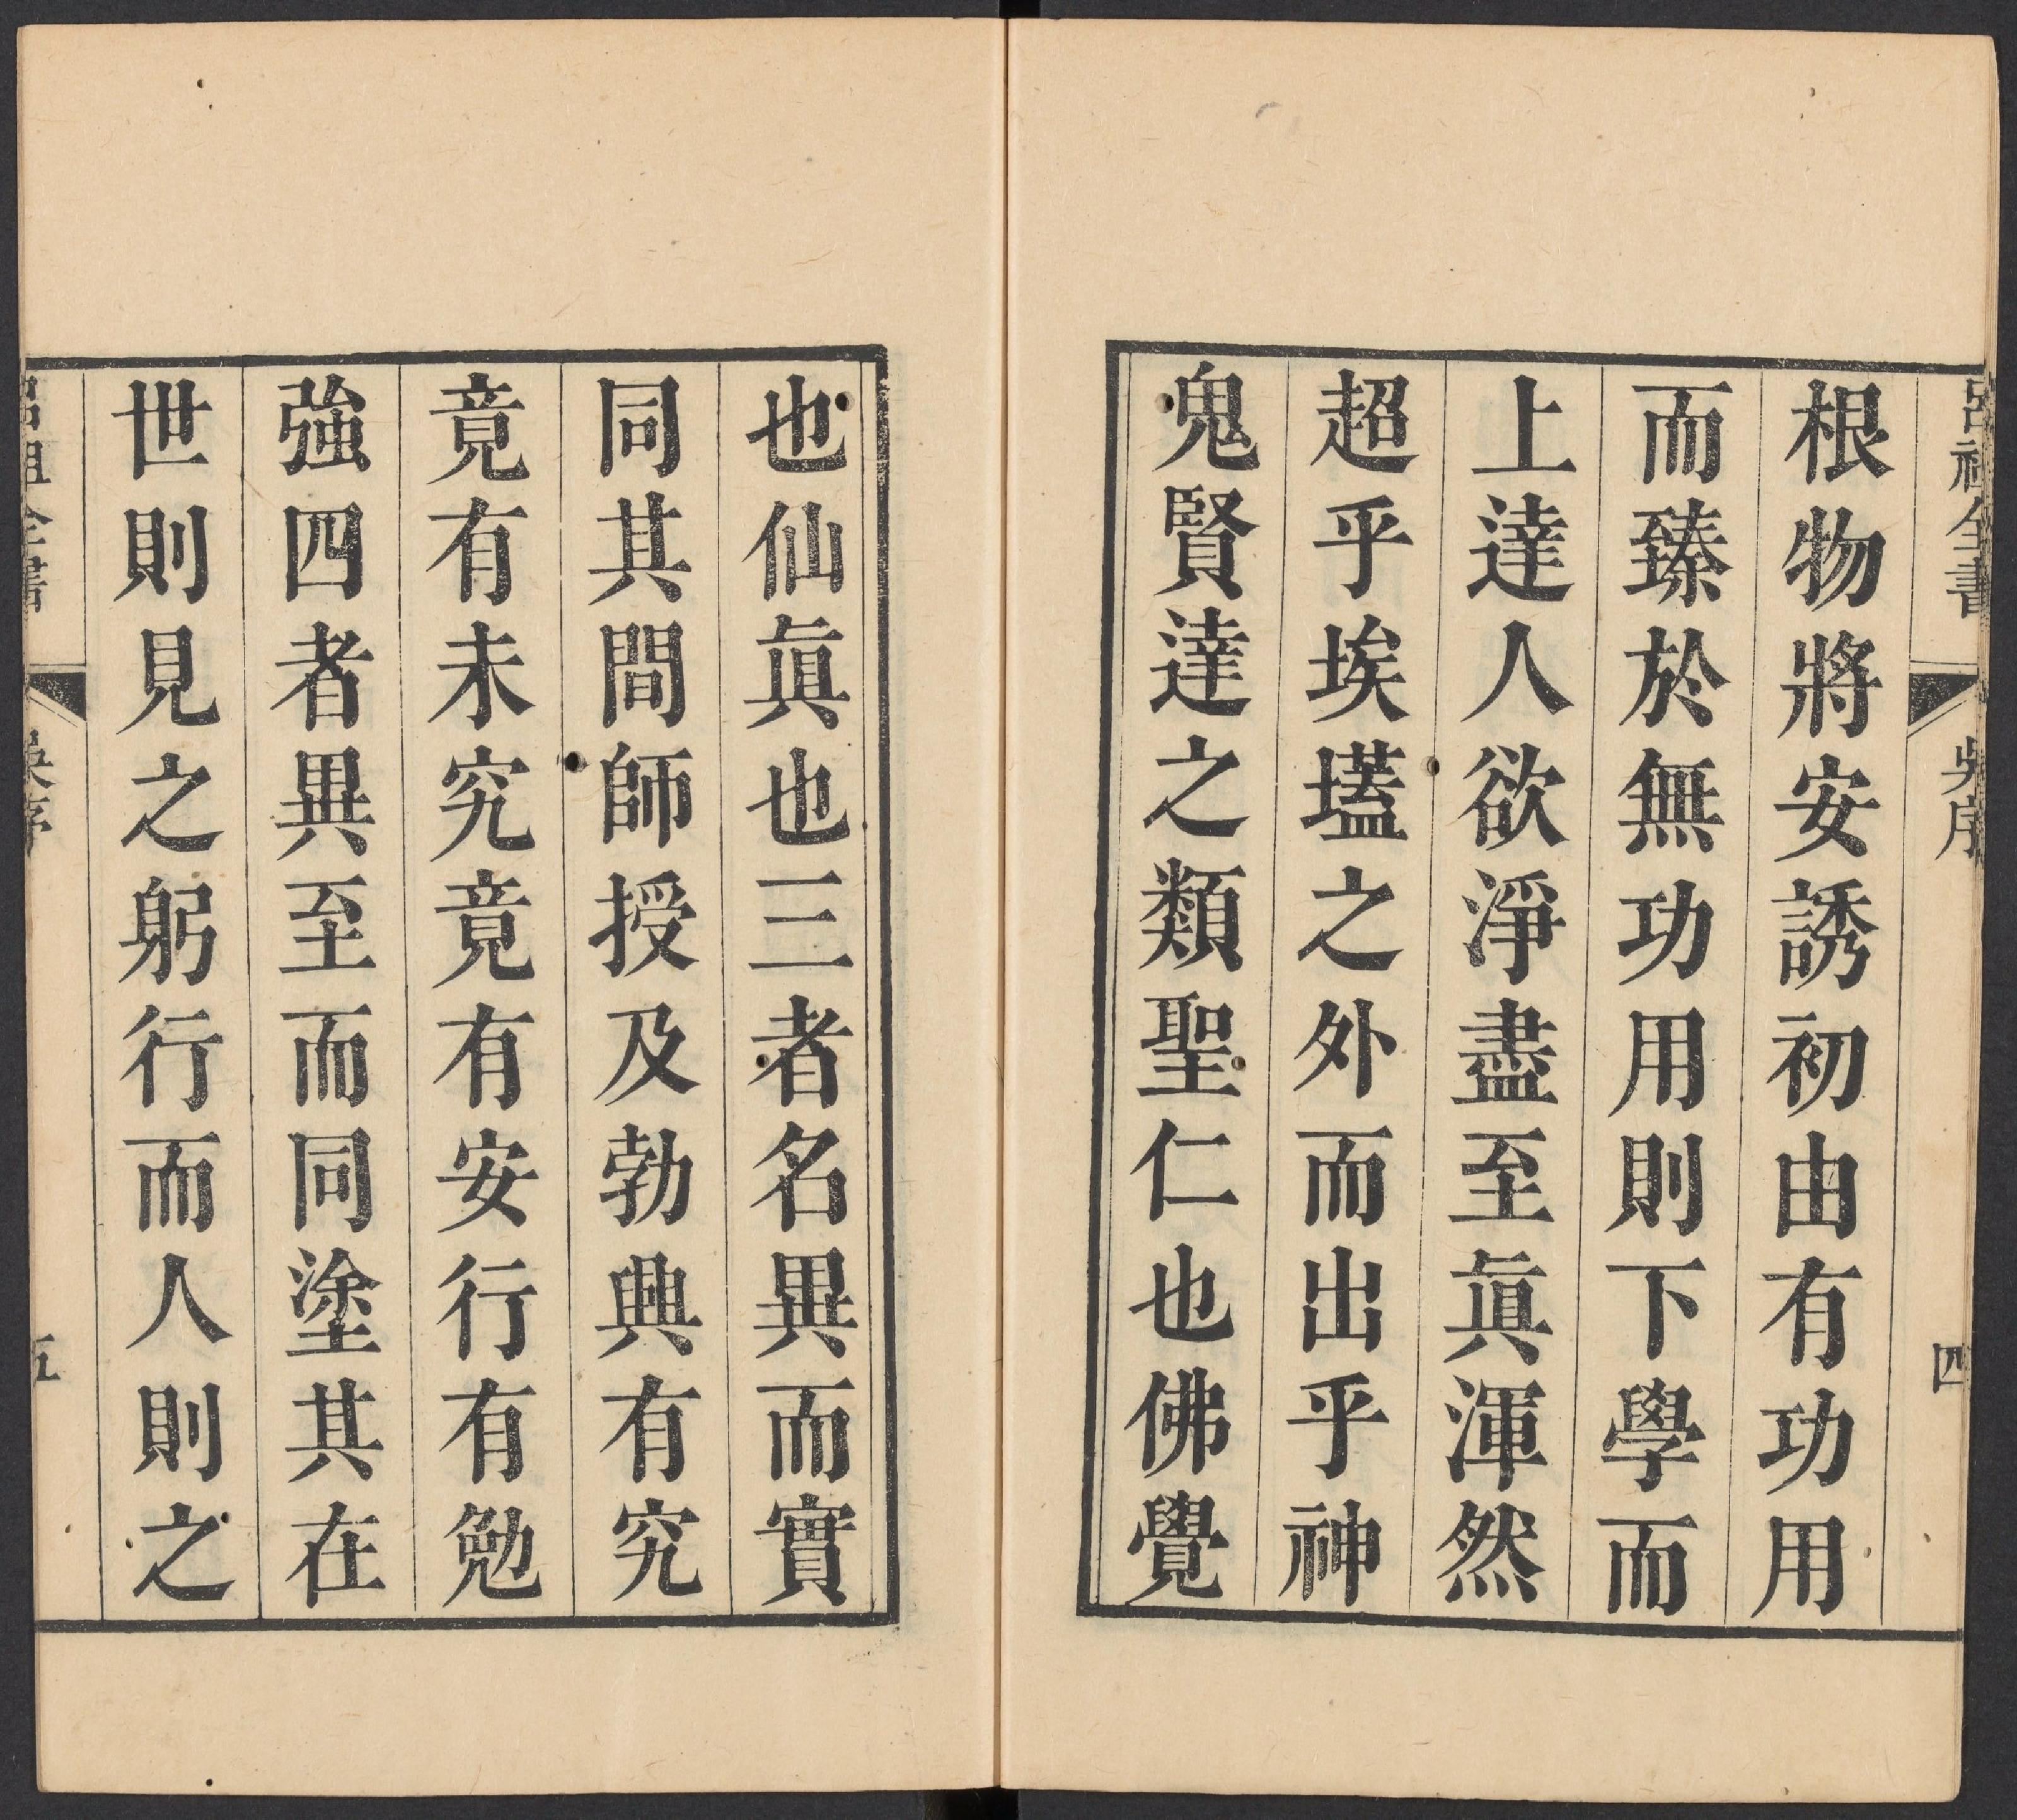 呂祖全書 吳序 四
根物將安誘初由有功用
而臻於無功用則下學而
上達人欲淨盡至眞渾然
超乎埃壒之外而出乎神
鬼賢達之類聖仁也佛覺
也仙眞也三者名異而實
同其間師授及勃興有究
竟有未究竟有安行有勉
強四者異至而同塗其在
世則見之躬行而人則之
呂祖全書 吳序 五